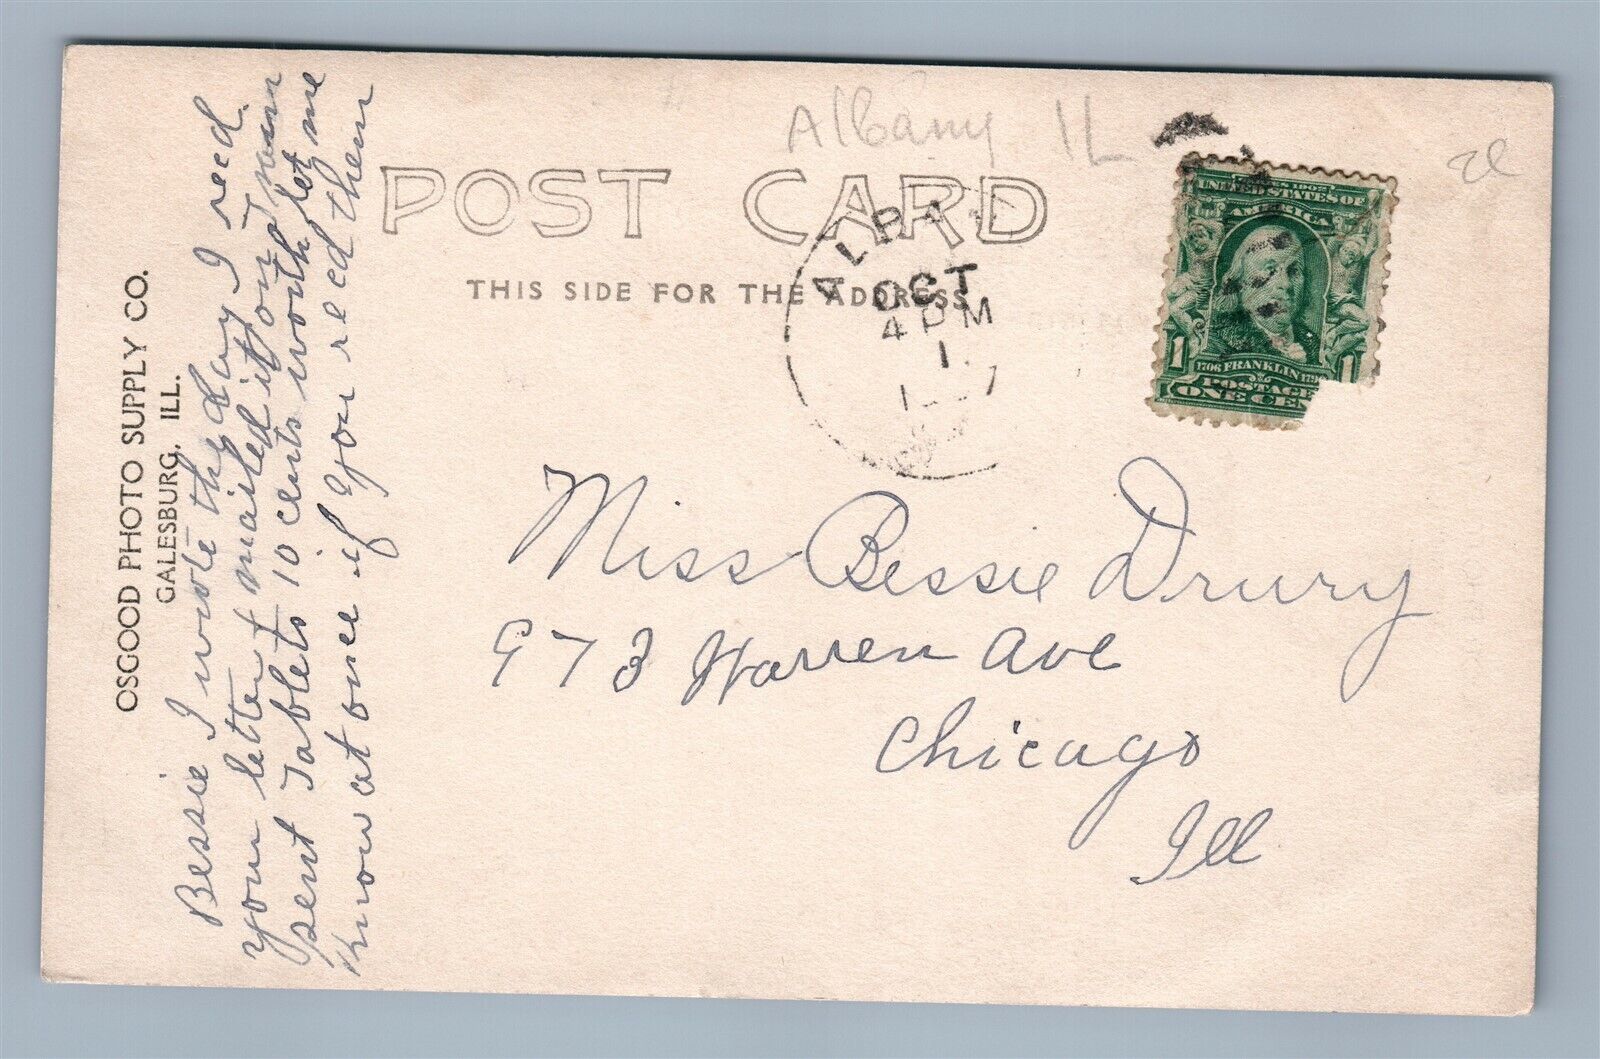 Albany IL
POST CARD
THIS SIDE FOR THE ADDRESS
ALBA
OCT
4 PM
1
SERIES 1902
UNITED STATES OF
AMERICA
1 1
1706 FRANKLIN 179
POSTAGE
ONE CEN
Miss Bessie Drury
973 Warren Ave
Chicago
Ill
OSGOOD PHOTO SUPPLY CO.
GALESBURG, ILL.
Bessie I wrote the day I recd.
your letter & mailed it on
sent Tablets 10 cents worth let me
know at once if you recd them